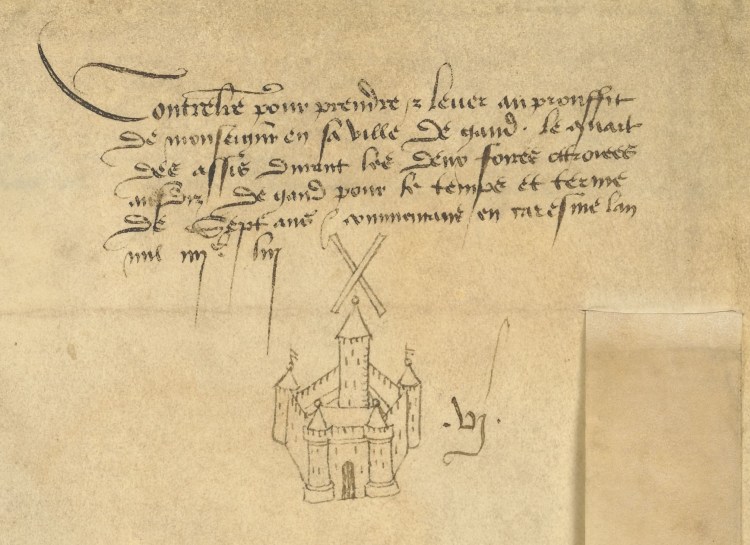 Contrelre pour prendre & lever au prouffit
de monseigneur en sa ville de gand . le quart
des assis durant les deux foires octroiees
ausdis de gand pour le temps et terme
de sept ans commencans en caresme lan
mil iiijc liij
.vj.